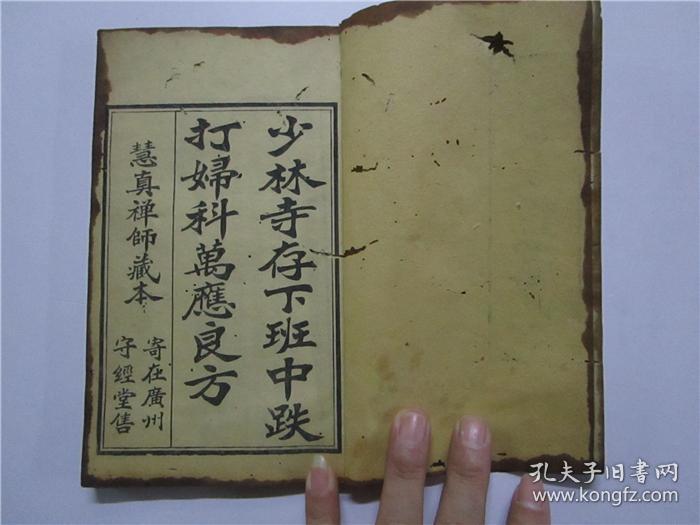 少林寺存下班中跌
打婦科萬應良方
慧真禅師藏本
寄在廣州
守經堂售
孔夫子旧书网
www.kongfz.com